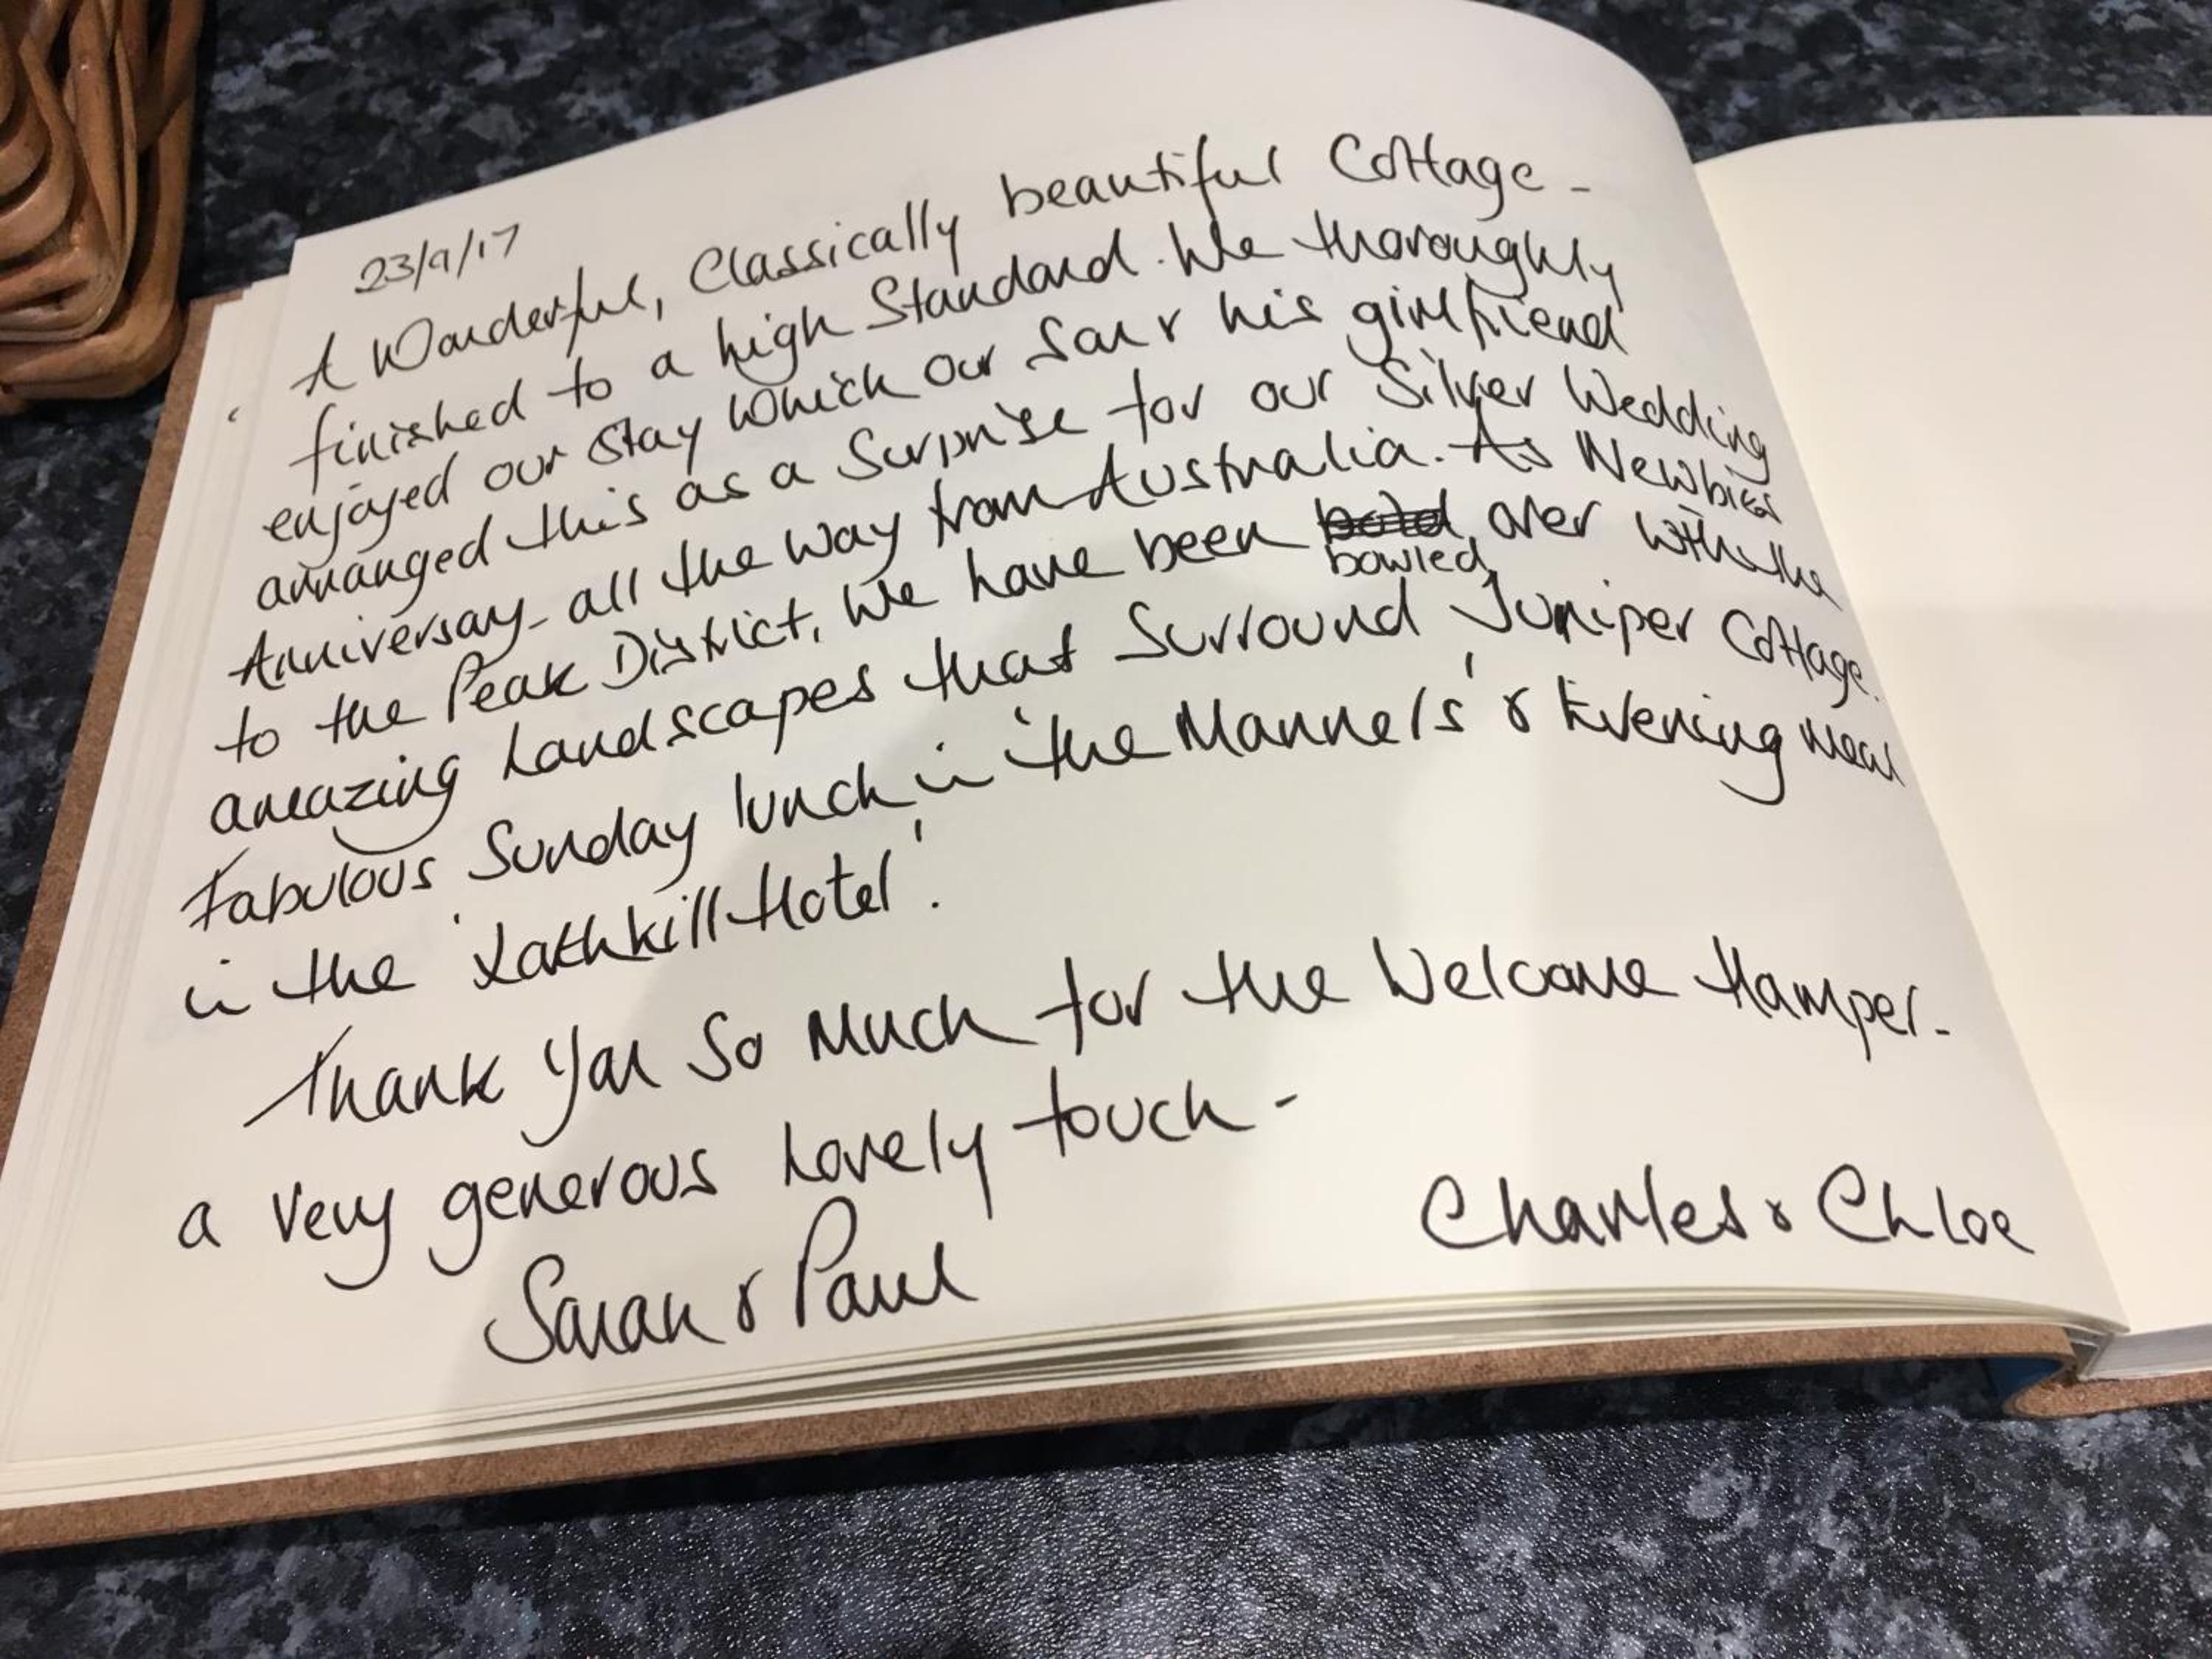 23/9/17
A Wonderful, Classically beautiful Cottage -
finished to a high Standard. We thoroughly
enjoyed our stay which our Son & his girlfriend
arranged this as a Surprise for our Silver Wedding
Anniversay - all the way from Australia. As Newbies
to the Peak District, We have been bowled over with the
amazing Landscapes that Surround Juniper Cottage.
Fabulous Sunday lunch in 'the Manners' & Evening meal
in the 'Lathkill Hotel'.
Thank You So Much for the Welcome Hamper -
a very generous Lovely touch -
Sarah & Paul
Charles & Chloe